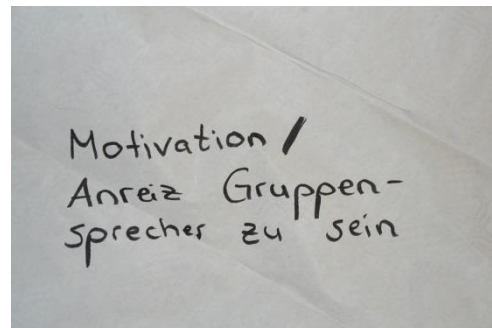 Motivation /
Anreiz Gruppen-
sprecher zu sein